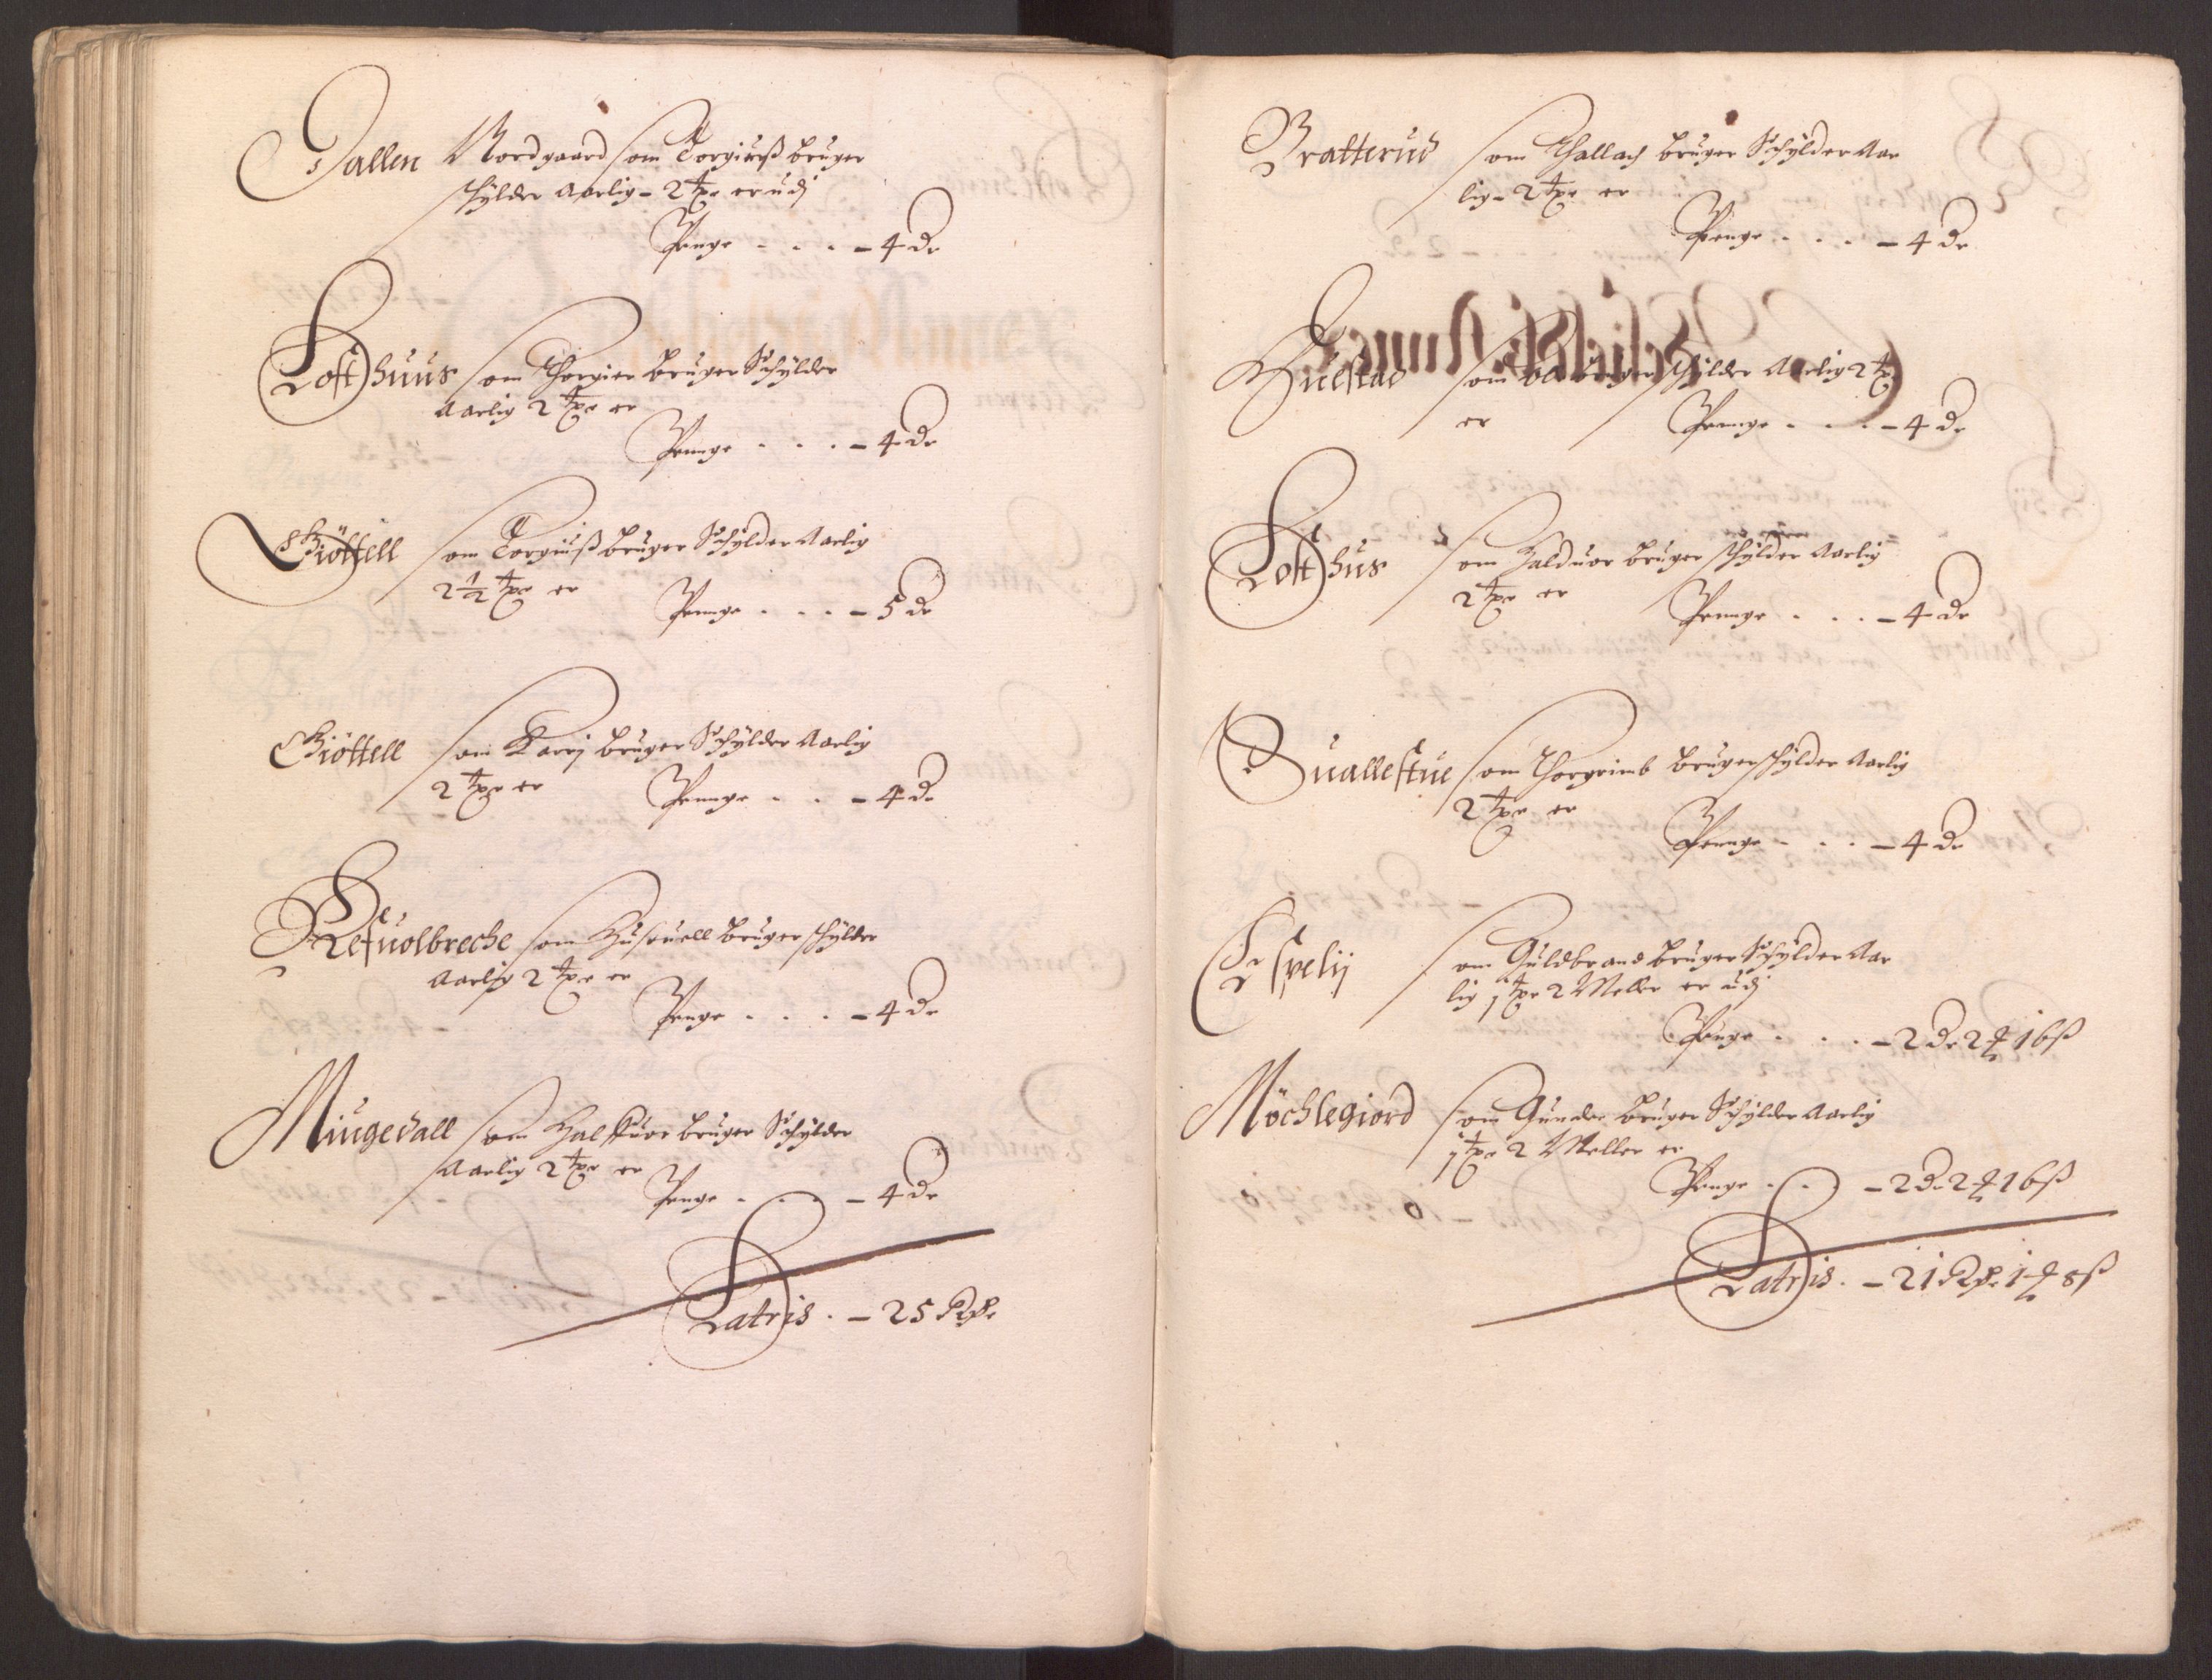 Dallen Nordgaard som Torgiuß bruger
schylder Aarlig - 2 tpr er udj
Penge - - - - 4 dr
Lofthuus som Thorgier bruger Schylder
Aarlig 2 tpr er
Penge - - - - 4 dr
Giöttell som Torgiuß bruger Schylder Aarlig
2 1/2 tpr er
Penge - - - - 5 dr
Giöttell som Karrj bruger Schylder Aarlig
2 tpr er
Penge - - - 4 dr
som bruger schylder
Aarlig 2 tpr er
Penge - - - - 4 dr
Miugedall som bruger Schylder
Aarlig 2 tpr er
Penge - - - 4 dr
Latris - 25 Rdr
Bratterud som Thallach bruger Schylder Aar
lig - 2 tpr er
Penge - - - - 4 dr
som Ole bruger schylder Aarlig 2 tpr
er Penge - - - - 4 dr
Lofthus som Halduor bruger schylder Aarlig
2 tpr er
Penge - - - - 4 dr
Quallestue som Thorgrimb bruger schylder Aarlig
2 tpr er
Penge - - - - 4 dr
Espelij som Guldbrand bruger Schylder Aar
lig 1 tpr 2 Meller er udj
Penge - - - - 2 dr 2 ß 16 ß
Möchlegiord som Gunder bruger Schylder Aarlig
1 tpr 2 Meller er
Penge - - - 2 dr 2 ß 16 ß
Latris - 21 Rdr 1 ß 8 ß